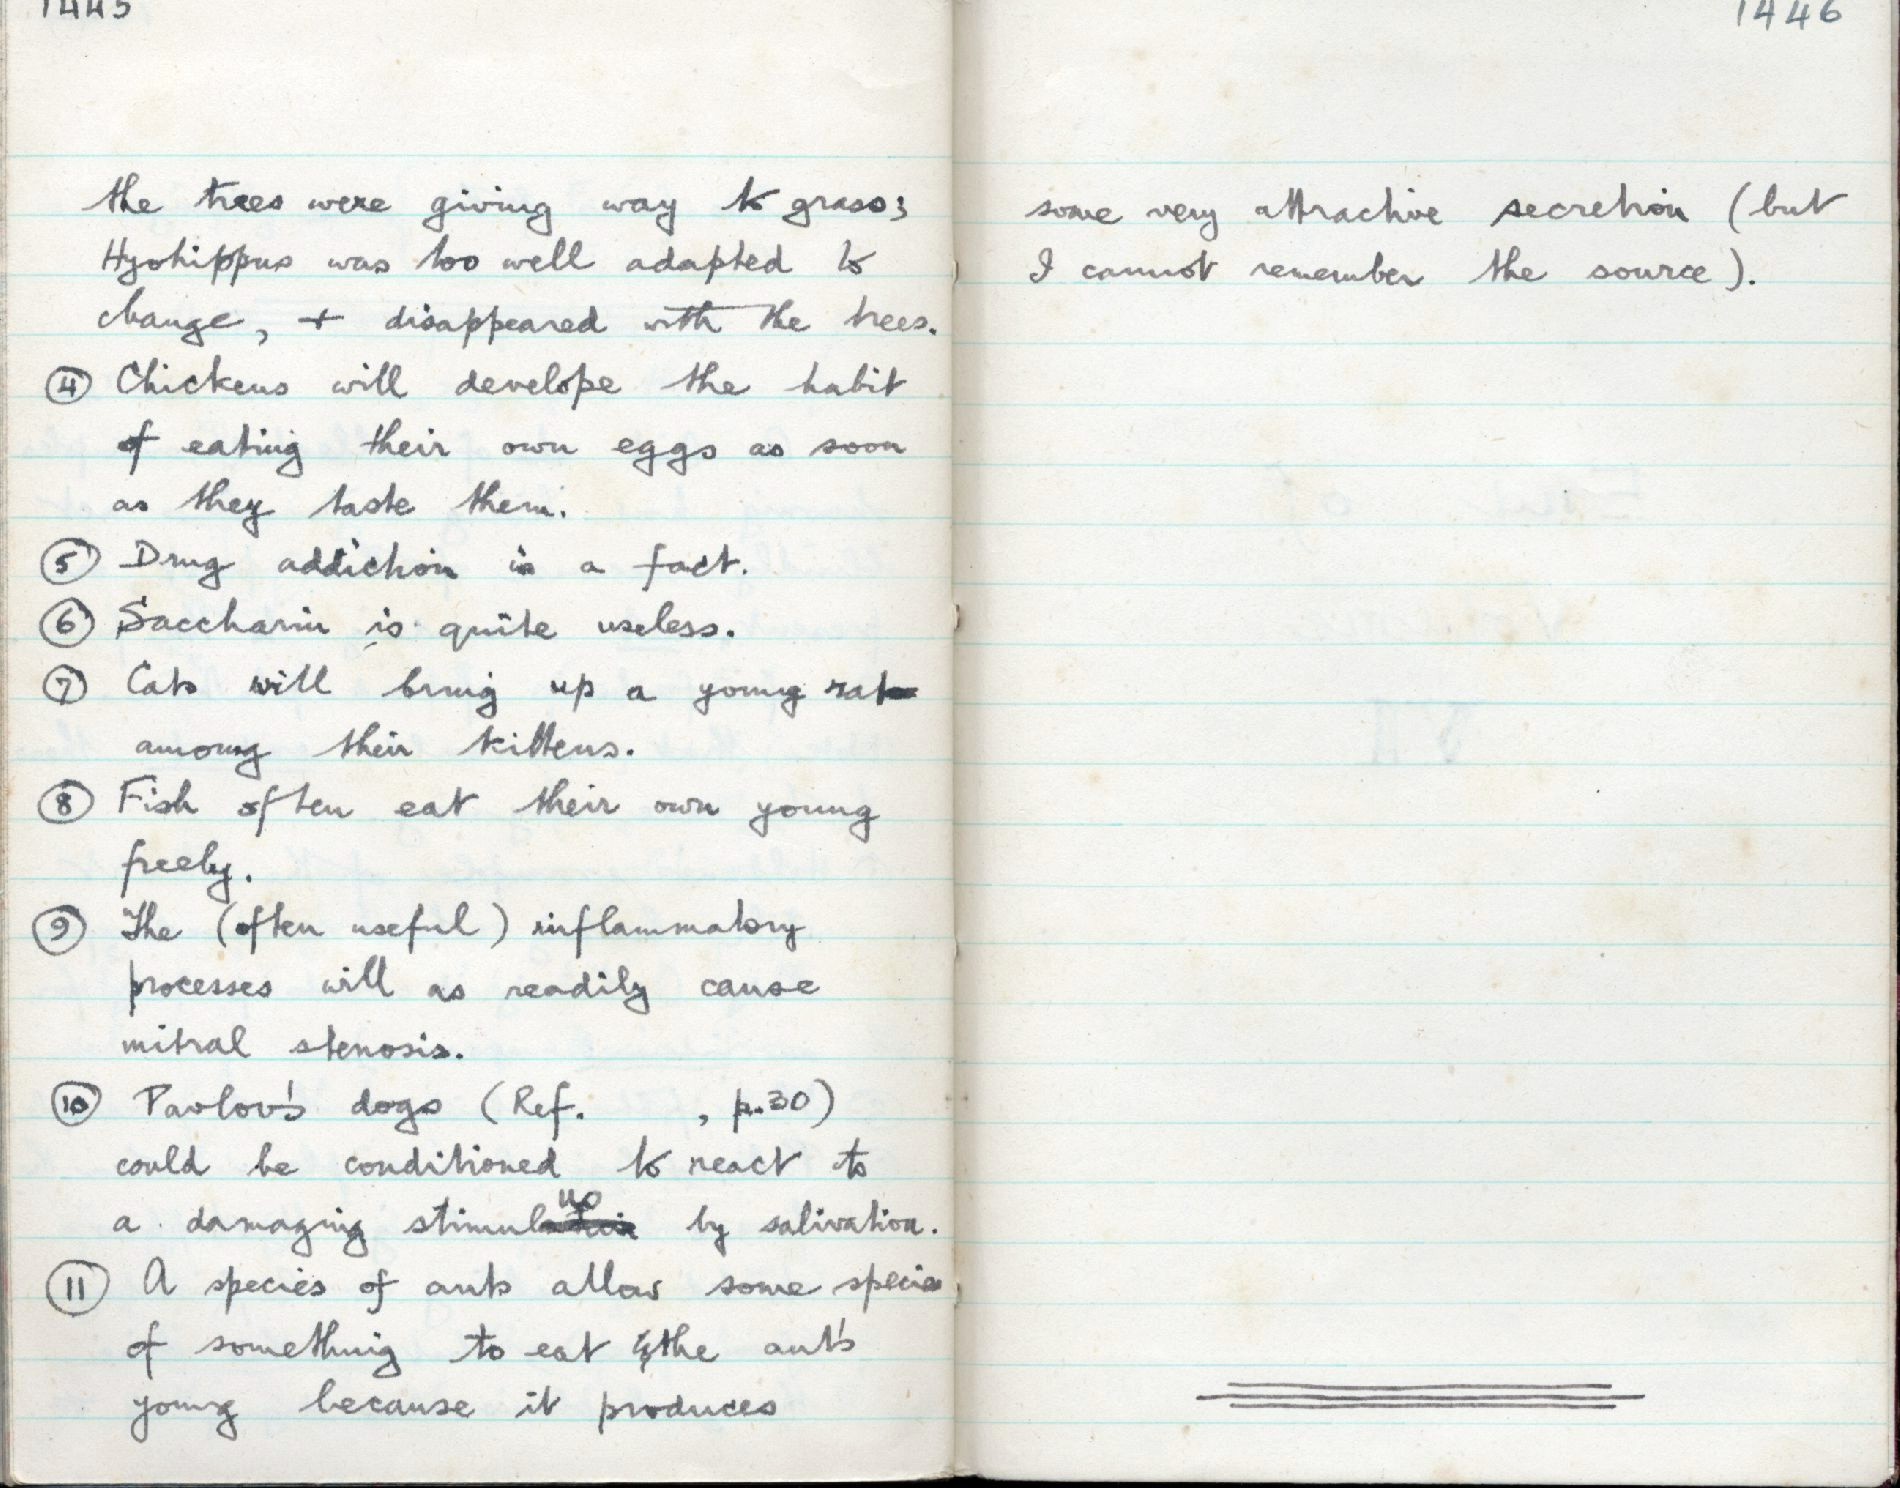 1445
the trees were giving way to grass;
Hyohippus was too well adapted to
change, + disappeared with the trees.
④ Chickens will develope the habit
of eating their own eggs as soon
as they taste them.
⑤ Drug addiction is a fact.
⑥ Saccharin is quite useless.
⑦ Cats will bring up a young rat
among their kittens.
⑧ Fish often eat their own young
freely.
⑨ The (often useful) inflammatory
processes will as readily cause
mitral stenosis.
⑩ Pavlov's dogs (Ref. , p.30)
could be conditioned to react to
a damaging stimulus by salivation.
⑪ A species of ants allow some species
of something to eat the ant's
young because it produces
1446
some very attractive secretion (but
I cannot remember the source).